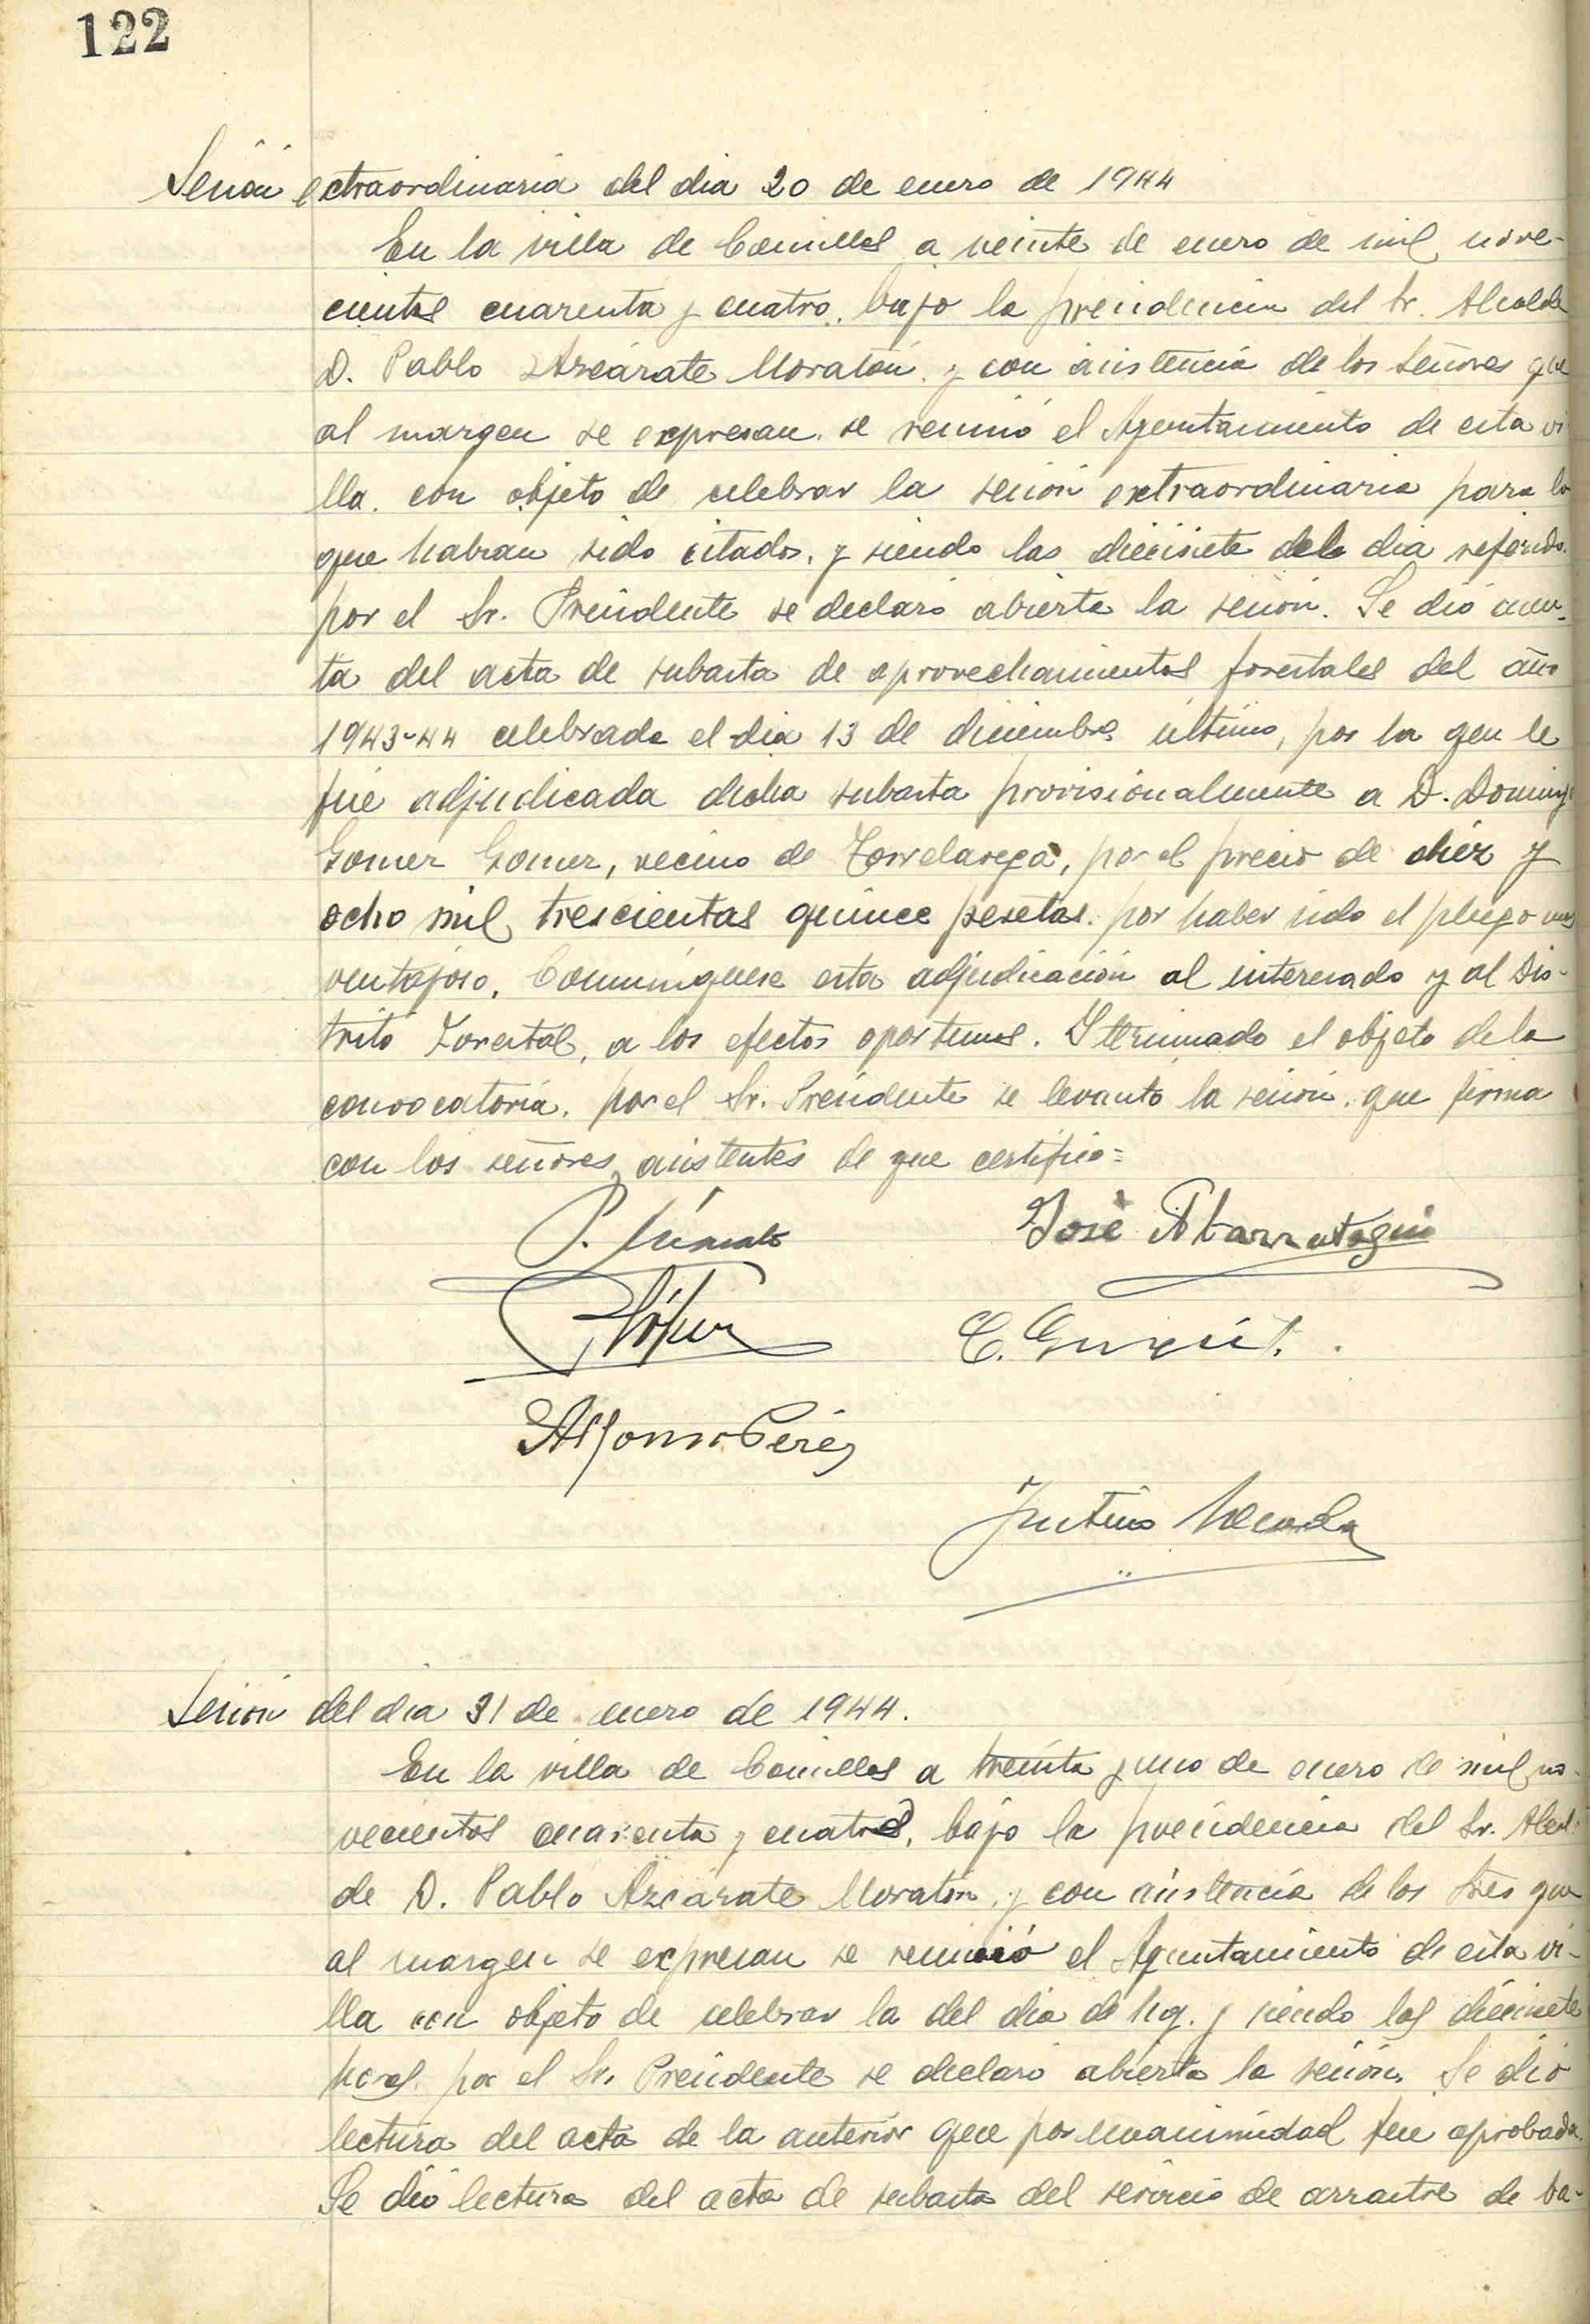 122
Sesión extraordinaria del dia 20 de enero de 1944
En la villa de Comillas a veinte de enero de mil nove-
cientos cuarenta y cuatro, bajo la presidencia del Sr. Alcalde
D. Pablo Azcárate Moratón, y con asistencia de los señores que
al margen se expresan, se reunió el Ayuntamiento de esta vi-
lla, con objeto de celebrar la sesión extraordinaria para lo
que habian sido citados, y siendo las diecisiete del dia referido,
por el Sr. Presidente se declaró abierta la sesión. Se dió cuen-
ta del acta de subasta de aprovechamientos forestales del año
1943-44 celebrada el dia 13 de diciembre último, por la que le
fué adjudicada dicha subasta provisionalmente a D. Domingo
Gomez Gomez, vecino de Torrelavega, por el precio de diez y
ocho mil trescientas quince pesetas, por haber sido el pliego mas
ventajoso. Comuníquese esta adjudicación al interesado y al Dis-
trito Forestal, a los efectos oportunos. Y terminado el objeto de la
convocatoria, por el Sr. Presidente se levantó la sesión, que firma
con los señores asistentes de que certifico=
P. Azcárate José
López C.
Alfonso Pérez
Justino
Sesión del dia 31 de enero de 1944.
En la villa de Comillas a treinta y uno de enero de mil no-
vecientos cuarenta y cuatro, bajo la presidencia del Sr. Alcal-
de D. Pablo Azcárate Moratón, y con asistencia de los Sres que
al margen se expresan se reunió el Ayuntamiento de esta vi-
lla con objeto de celebrar la del dia de hoy. y siendo las diecisiete
horas, por el Sr. Presidente se declaró abierta la sesión. Se dió
lectura del acta de la anterior que por unanimidad fue aprobada.
Se dió lectura del acta de subasta del servicio de arrastre de ba-